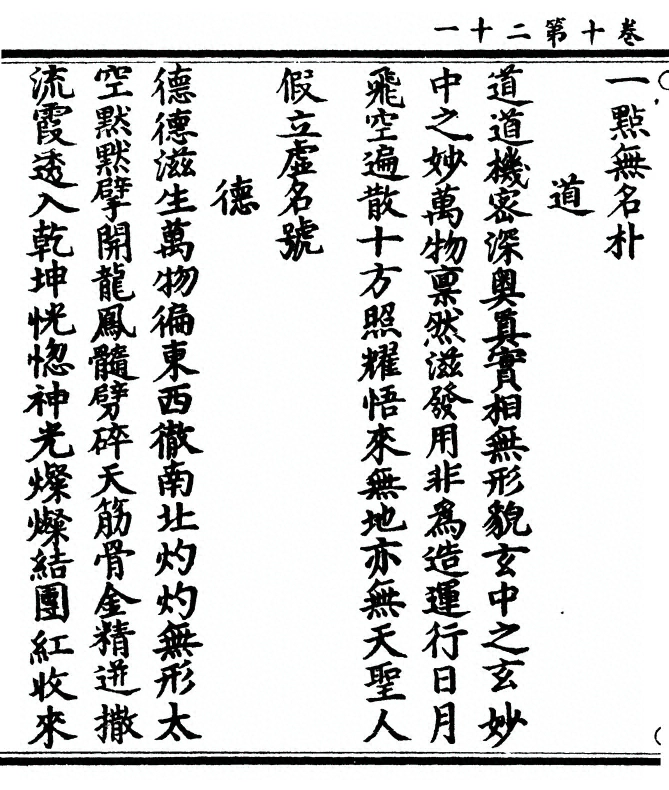 卷十第二十一
一點無名朴
道
道道機密深奧眞實相無形貌玄中之玄妙
中之妙萬物稟然滋發用非爲造運行日月
飛空遍散十方照耀悟來無地亦無天聖人
假立虛名號
德
德德滋生萬物徧東西徹南北灼灼無形太
空默默擘開龍鳳髓劈碎天筋骨金精迸撒
流霞透入乾坤恍惚神光燦燦結團紅收來